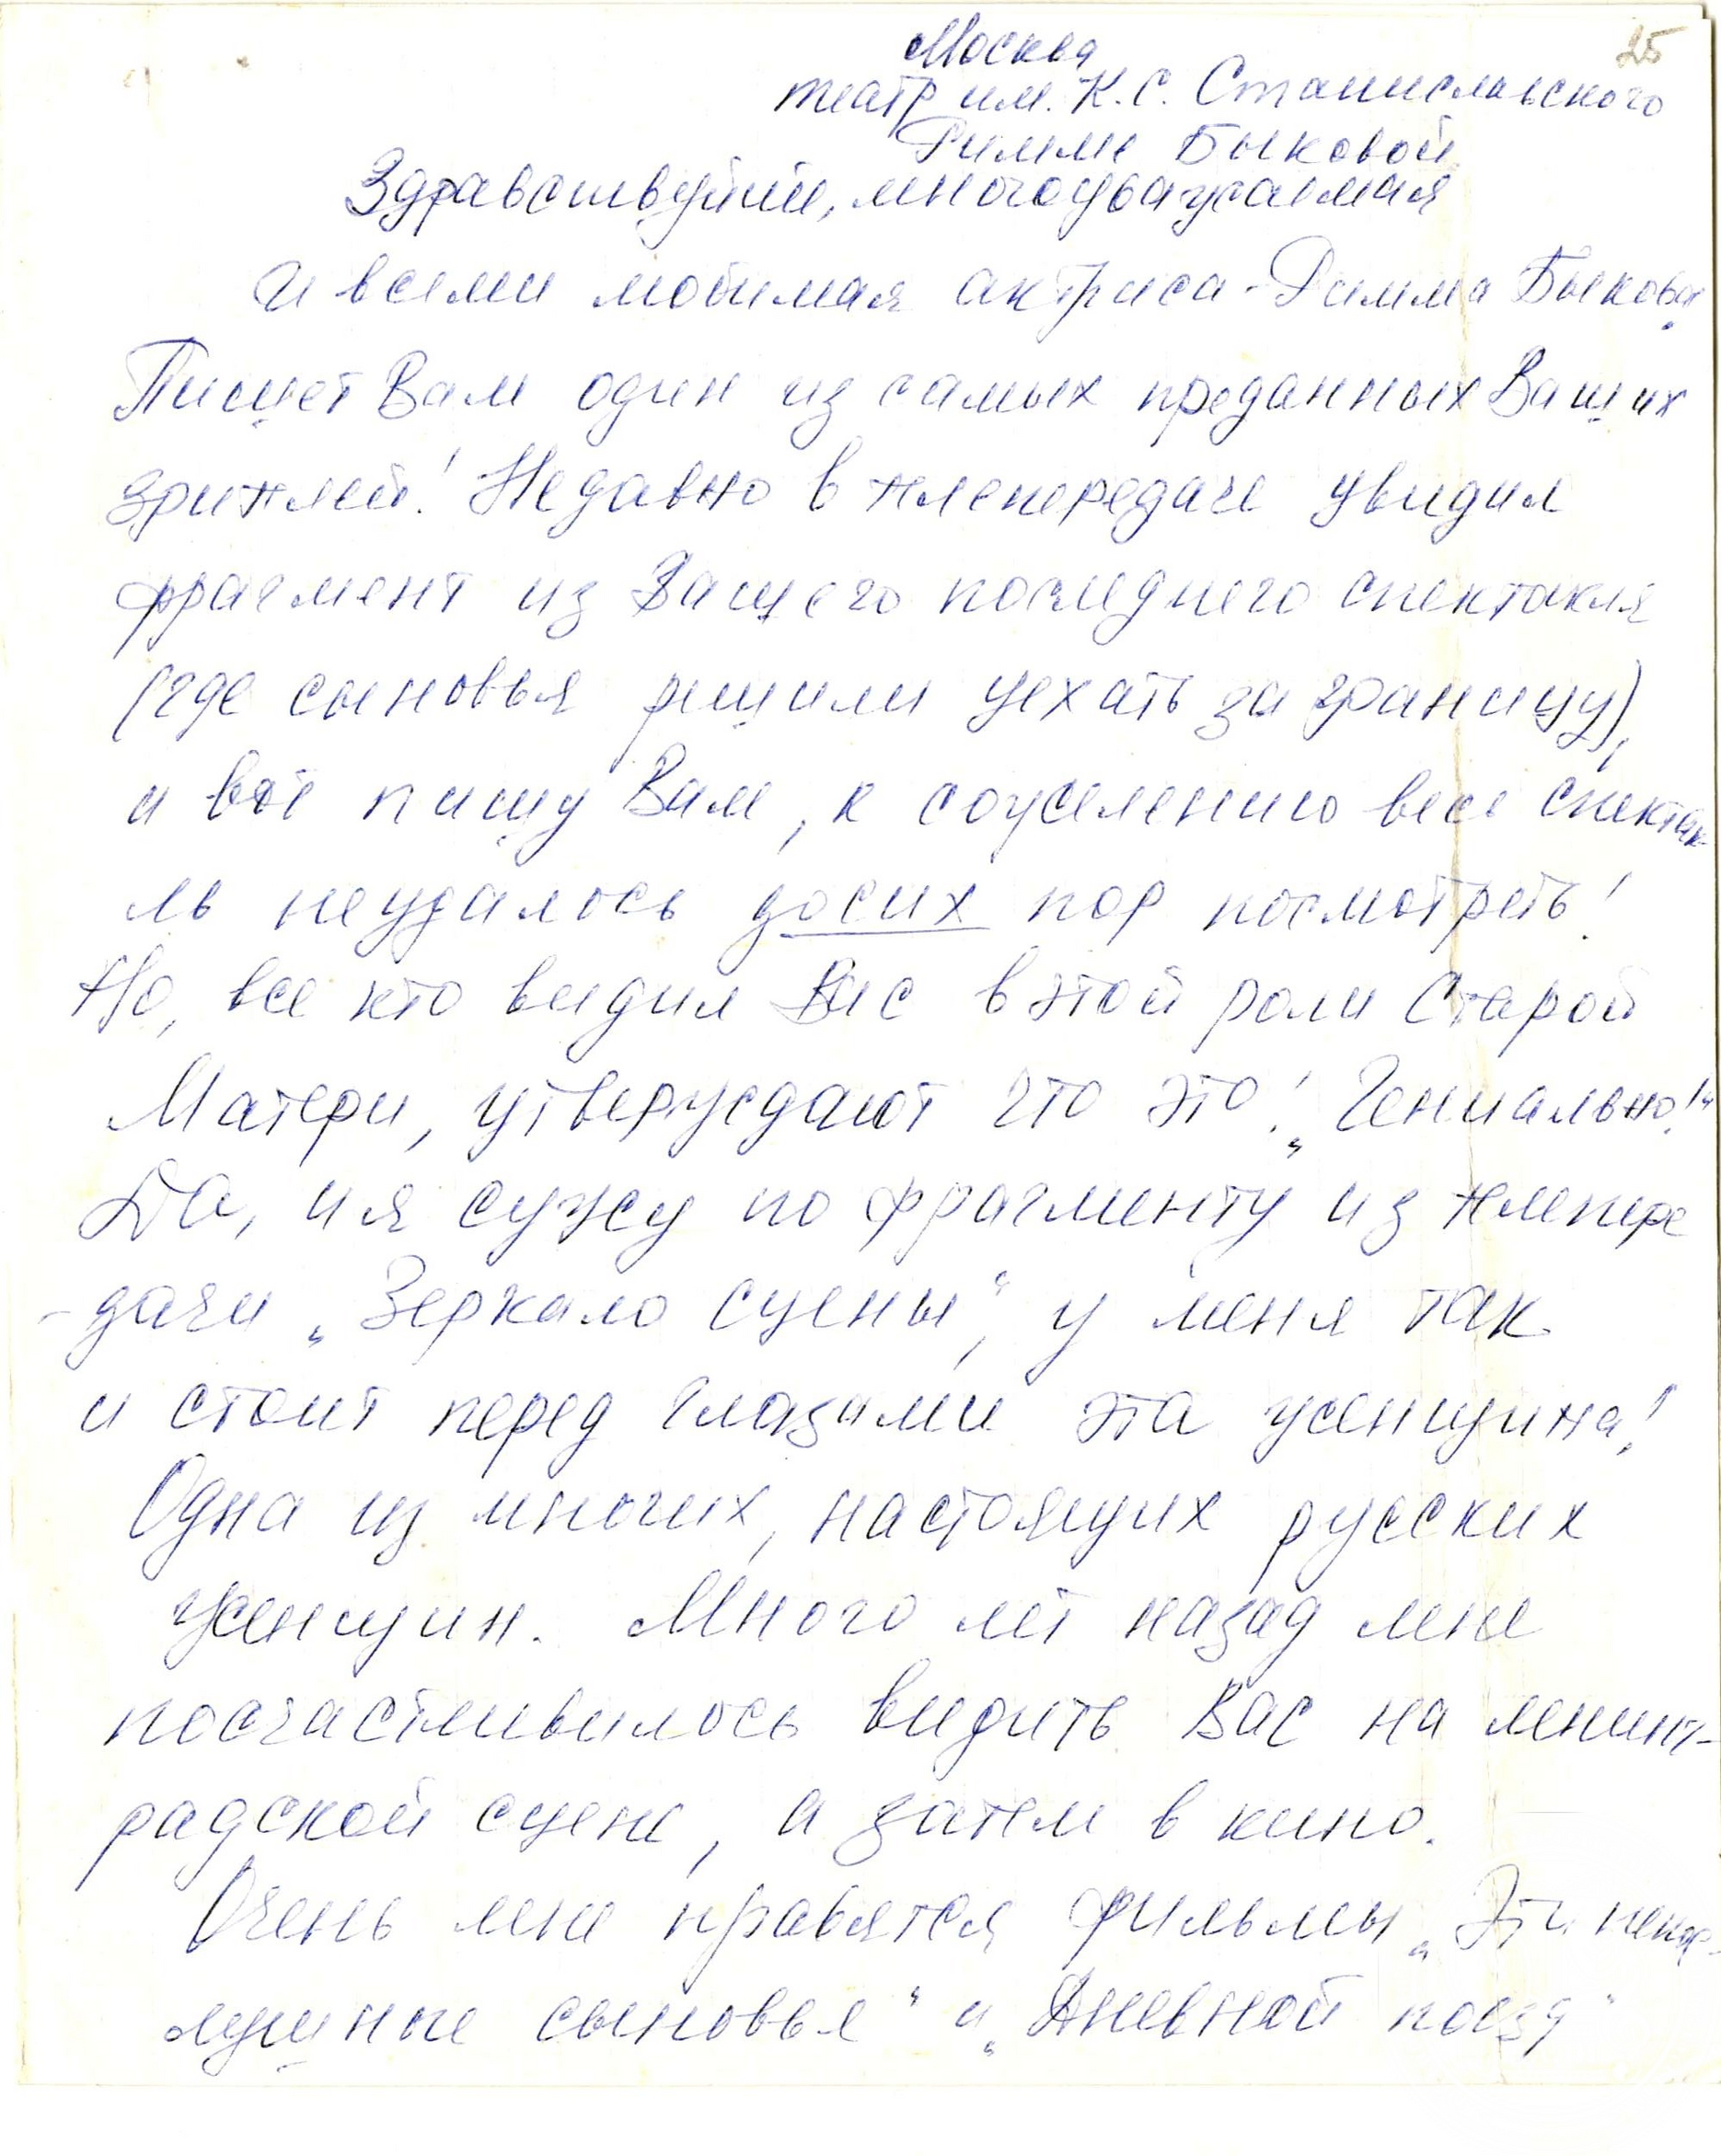 25
Москва
театр им. К.С. Станиславского
Римме Быковой
Здравствуйте, многоуважаемая
и всеми любимая актриса - Римма Быкова.
Пишет Вам один из самых преданных Ваших
зрителей! Недавно в телепередаче увидил
фрагмент из Вашего последнего спектакля
(где сыновья решили уехать за границу),
и вот пишу Вам, к сожелению весь спектак
ль неудалось досих пор посмотреть!
Но, все кто видил Вас в этой роли Старой
Матери, утверждают что это! „Гениально!“
Да, и я сужу по фрагменту из телепере
-дачи „Зеркало сцены“, у меня так
и стоит перед глазами эта женщина!
Одна из многих, настоящих русских
женщин. Много лет назад мне
посчастливилось видить Вас на ленинг-
радской сцене, а затем в кино.
Очень мне нравятся фильмы „Эти непос-
лушные сыновья“ и „Дневной поезд“